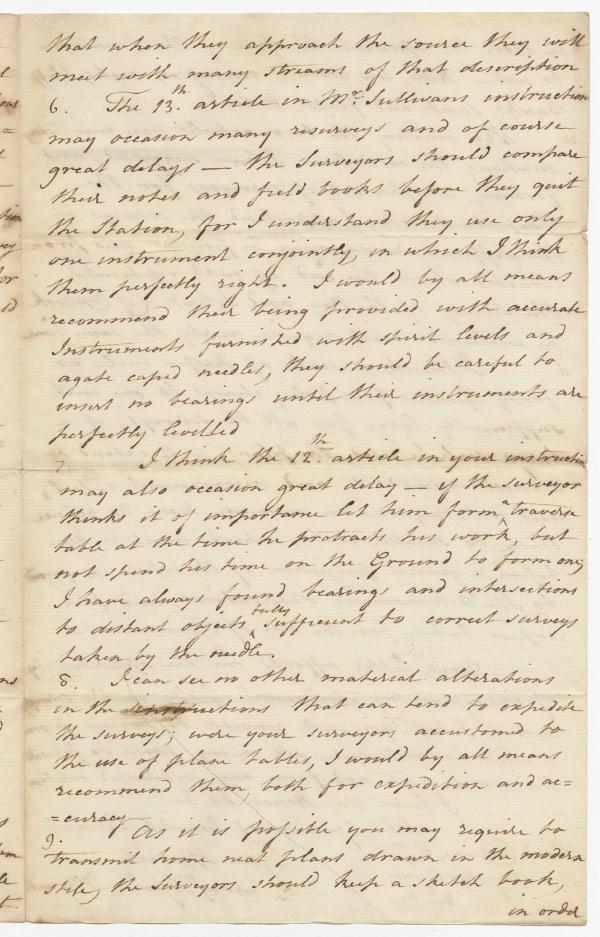 that when they approach the source they will
meet with many streams of that description
6. The 13th. article in Mr. Sullivans instruction
may occasion many resurveys and of course
great delays — the Surveyors should compare
their notes and field books before they quit
the Station, for I understand they use only
one instrument conjointly, in which I think
them perfectly right. I would by all means
recommend their being provided with accurate
Instruments furnished with spirit levels and
agate caped needles, they should be careful to
insert no bearings until their instruments are
perfectly levelled
7 I think the 12th. article in your instruction
may also occasion great delay — if the surveyor
thinks it of importance let him form a traverse
table at the time he protracts his work, but
not spend his time on the Ground to form one,
I have always found bearings and intersections
to distant objects fully sufficient to correct surveys
taken by the needle.
8. I can see no other material alterations
in the instructions that can tend to expedite
the surveys; were your surveyors accustomed to
the use of plane tables, I would by all means
recommend them, both for expedition and ac=
=curacy
9. As it is possible you may require to
transmit home neat plans drawn in the modern
stile, the Surveyors should keep a sketch book,
in order